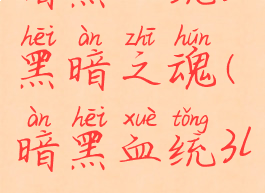 hēi àn zhī hún
黑暗之魂(
àn hēi xuè tǒng
暗黑血统3l